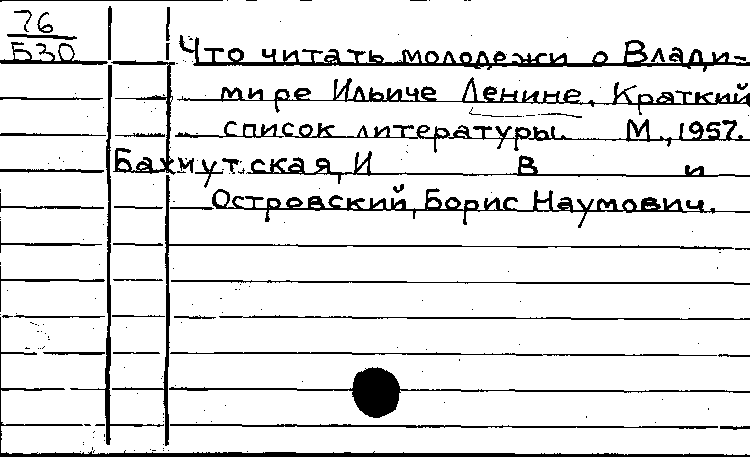 76
Б30
Что читать молодежи о Влади-
мире Ильиче Ленине. Краткий
список литературы. М., 1957.
Бахмутская, И В и
Островский, Борис Наумович.